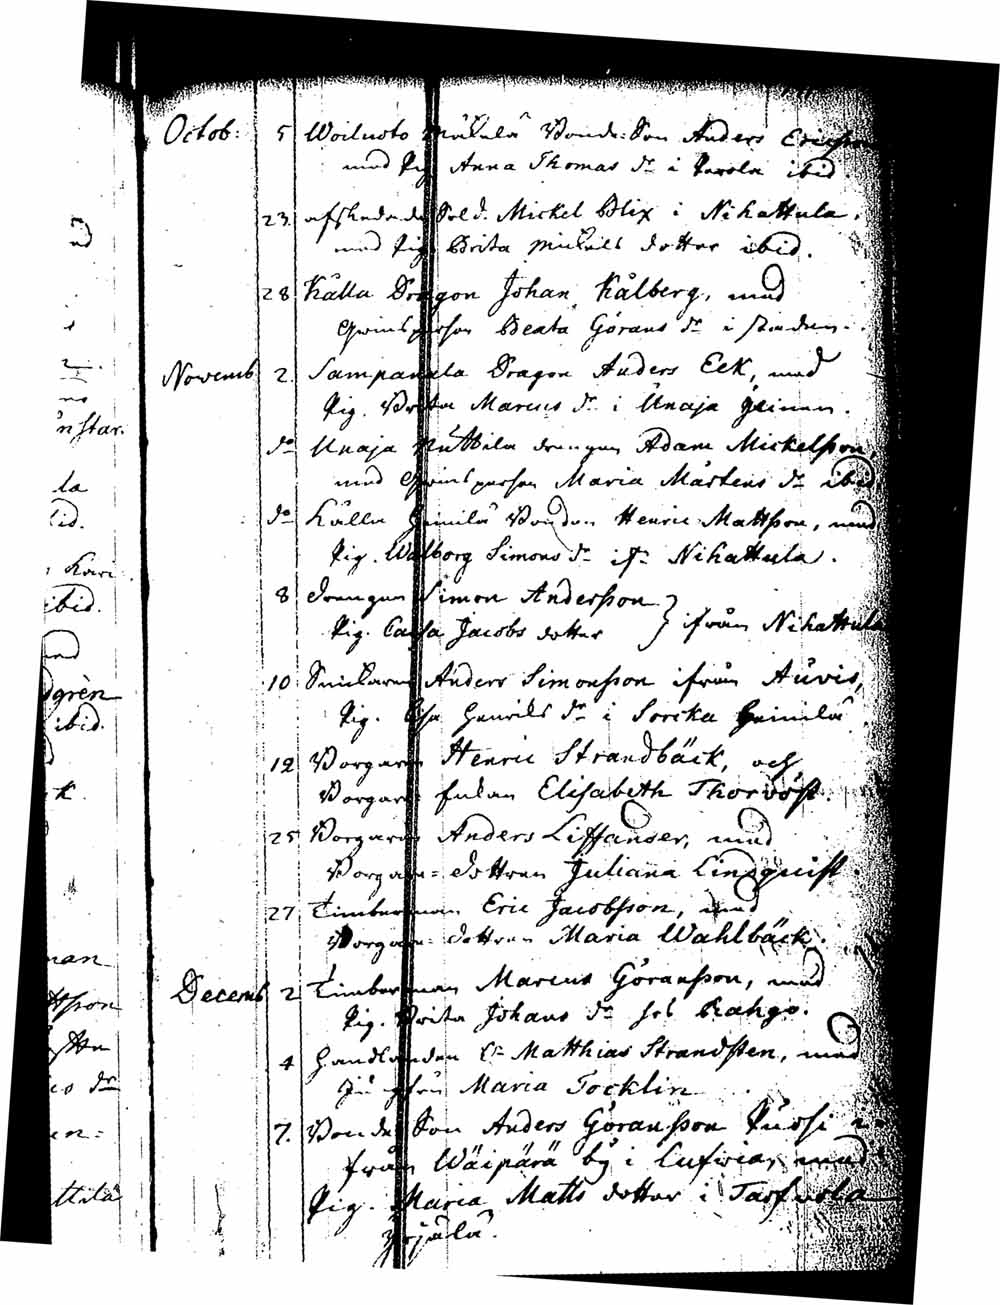 Octob: 5 Woiluoto Mäkilä Bonde-Son Anders Ericsson
med Pig. Anna Thomas dr i ibid
23. afskedade Sold. Mickel Blix i Nihattula,
med Pig. Brita Mickels dotter ibid.
28 Källa Dragon Johan Kålberg, med
Qwinsperson Beata Görans dr i
Novemb 2. Sampanala Dragon Anders Eek, med
Pig. Brita Marcus dr i Unaja
do Unaja drengen Adam Mickelsson,
med Qwinsperson Maria Mårtens dr ibid.
do Källa Heinilä Bonden Henric Mattsson, med
Pig. Walborg Simons dr ifr. Nihattula.
8 Drengen Simon Andersson
Pig. Caisa Jacobs dotter } ifrån Nihattula
10 Anders Simonsson ifrån Auvis,
Pig. Henriks dr i Sorcka Heinilä
12 Borgaren Henric Strandbäck, och
Borgare Enkan Elisabeth Thorwöst.
25 Borgaren Anders Liffländer, med
Borgare-dottren Juliana Lindquist.
27 Timberman Eric Jacobsson, med
Borgare dottren Maria Wahlbäck.
Decemb 2 Timberman Marcus Göransson, med
Pig. Brita Johans dr
4 Handlanden Hr Matthias Strandsten, med
Maria Tocklin
7. Bonde Son Anders Göransson Pussi
från Wäipärä by i Lufwia, med
Pig. Maria Matts dotter i
Yrjälä.
n star.
la
ibid.
ibid.
dgrèn
ibid.
k
man
ttsson
dr
en=
ttilä